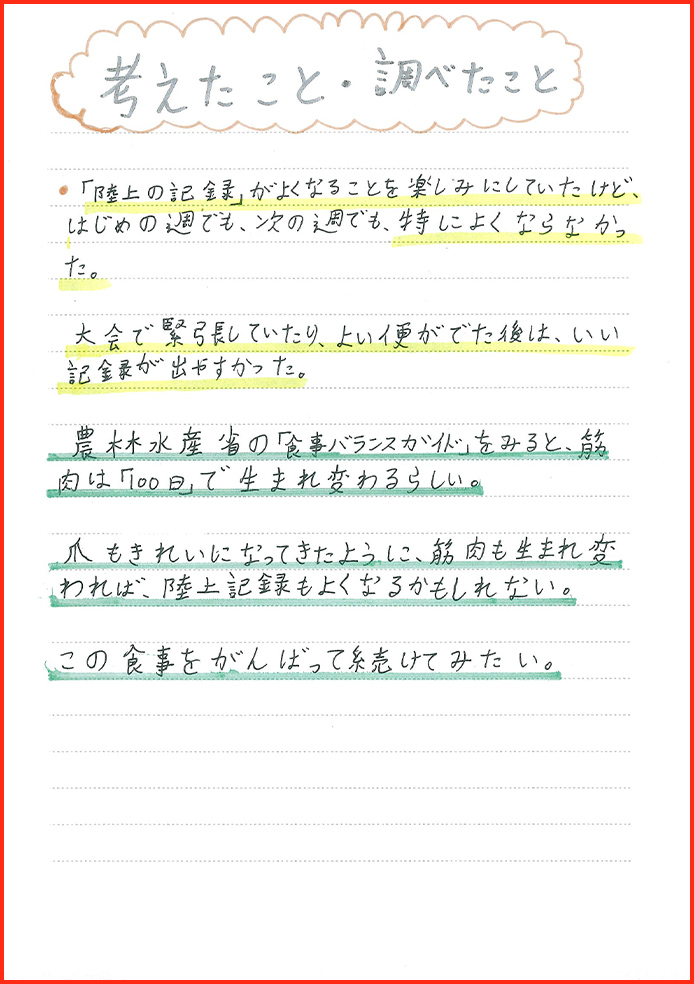 考えたこと・調べたこと
・「陸上の記録」がよくなることを楽しみにしていたけど、
はじめの週でも、次の週でも、特によくならなかっ
た。
大会で緊張していたり、よい便がでた後は、いい
記録が出やすかった。
農林水産省の「食事バランスガイド」をみると、筋
肉は「100日」で生まれ変わるらしい。
爪もきれいになってきたように、筋肉も生まれ変
われば、陸上記録もよくなるかもしれない。
この食事をがんばって続けてみたい。